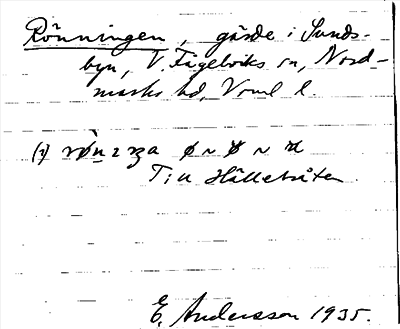 Rönningen, gärde i Sunds-
byn, V. Fågelviks sn, Nord-
marks hd, Vrml l.
(1)
Till Hälletråten
E. Andersson 1935.